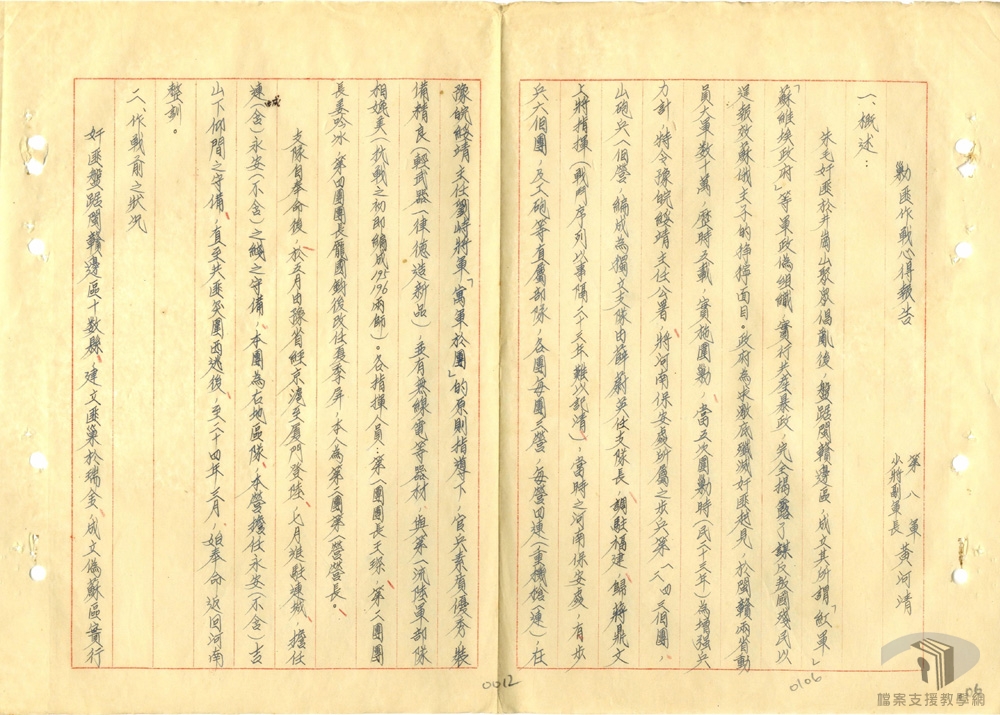 剿匪作戰心得報告
第八軍
少將副軍長 黃河清
一、概述：
朱毛奸匪於井崗山聚眾倡亂後，盤踞閩贛邊區，成立其所謂「紅軍」
「蘇維埃政府」等軍政偽組織，實行共產暴政，完全揭露了謀反叛國殘民以
逞報效蘇俄主子的猙獰面目。政府為求澈底殲滅奸匪起見，於閩贛兩省動
員大軍數十萬，歷時五載，實施圍剿，當五次圍剿時（民二十三年）為增強兵
力計，特令豫皖綏靖主任公署，將河南保安處所屬之步兵第一、二、四三個團，
山砲兵一個營，編成為獨立支隊由薛蔚英任支隊長，調駐福建，歸蔣鼎文
上將指揮（戰鬥序列以事隔二十三年難以記清），當時之河南保安處，有步
兵六個團，及工砲等直屬部隊，各團每團三營，每營四連（重機槍一連），在
豫皖綏靖主任劉峙將軍「寓軍於團」的原則指導下，官兵素質優秀，裝
備精良（輕武器一律德造新品），並有無線電等器材，與第一流陸軍部隊
相媲美（抗戰之初即編成195 196兩師）。各指揮人員：第一團團長王琛，第二團團
長姜吟冰，第四團團長龐國鈞後改任婁季屏，本人為第二團第一營營長。
支隊自奉命後，於五月由豫省經京滬至廈門登陸，七月推駐連城，擔任
連城（含）永安（不含）之綫之守備，本團為右地區隊，本營擔任永安（不含）吉
山下佃間之守備，直至共匪突圍西逃後，至二十四年三月，始奉命返回河南
整訓。
二、作戰前之狀況
奸匪盤踞閩贛邊區十數縣，建立匪巢於瑞金，成立偽蘇區實行
0012
0106
檔案支援教學網